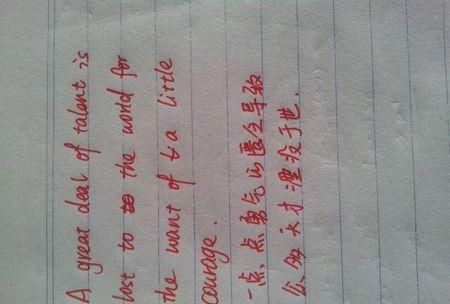 A great deal of talent is
lost to the world for
the want of a little
courage.
一点点勇气的匮乏导致
众多天才湮没于世.